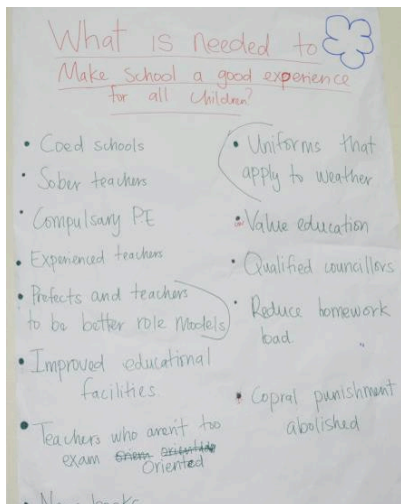 What is needed to
Make School a good experience
for all Children?
• Coed schools
• Sober teachers
• Compulsary PE
• Experienced teachers
• Prefects and teachers
to be better role Models
• Improved educational
facilities
• Teachers who aren't too
exam
Oriented
• New books
• Uniforms that
apply to weather
• Value education
• Qualified councillors
• Reduce homework
load
• Copral punishment
abolished